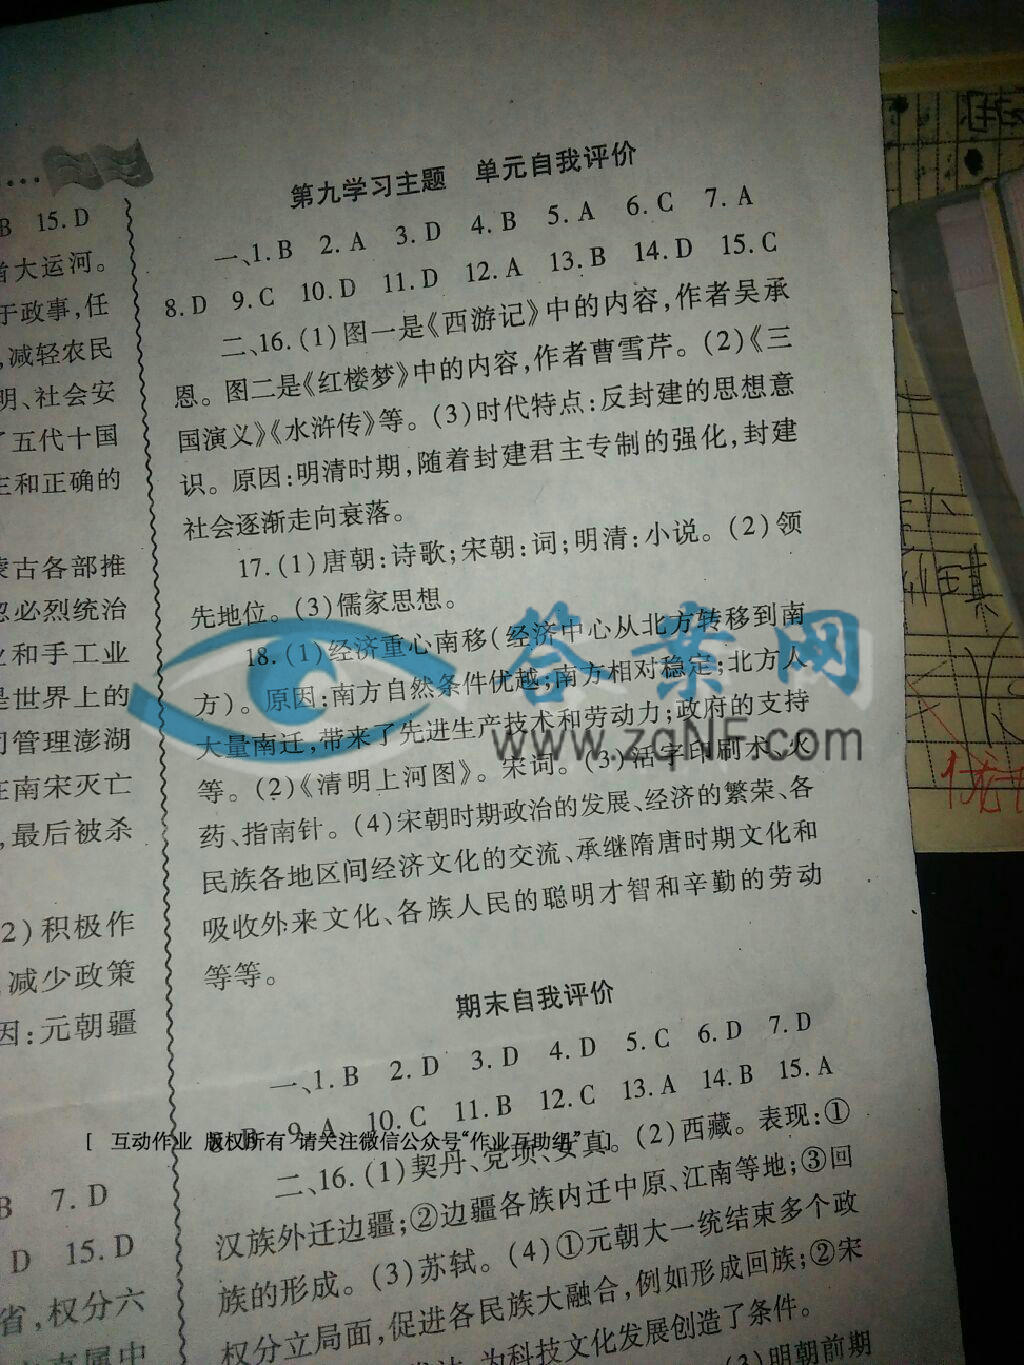 B 15. D
大运河。
于政事,任
,减轻农民
明、社会安
五代十国
和正确的
古各部推
忽必烈统治
和手工业
是世界上的
管理澎湖
在南宋灭亡
,最后被杀
2)积极作
,减少政策
因:元朝疆
B 7. D
D 15. D
省,权分六
直属中
第九学习主题 单元自我评价
一、1. B 2. A 3. D 4. B 5. A 6. C 7. A
8. D 9. C 10. D 11. D 12. A 13. B 14. D 15. C
二、16. (1)图一是《西游记》中的内容,作者吴承
恩。图二是《红楼梦》中的内容,作者曹雪芹。(2)《三
国演义》《水浒传》等。(3)时代特点:反封建的思想意
识。原因:明清时期,随着封建君主专制的强化,封建
社会逐渐走向衰落。
17. (1)唐朝:诗歌;宋朝:词;明清:小说。(2)领
先地位。(3)儒家思想。
18. (1)经济重心南移(经济中心从北方转移到南
方)。原因:南方自然条件优越;南方相对稳定;北方人
大量南迁,带来了先进生产技术和劳动力;政府的支持
等。(2)《清明上河图》。宋词。(3)活字印刷术、火
药、指南针。(4)宋朝时期政治的发展、经济的繁荣、各
民族各地区间经济文化的交流、承继隋唐时期文化和
吸收外来文化、各族人民的聪明才智和辛勤的劳动
等等。
答案网
www.zqNF.com
期末自我评价
一、1. B 2. D 3. D 4. D 5. C 6. D 7. D
9. A 10. C 11. B 12. C 13. A 14. B 15. A
[ 互动作业 版权所有 请关注微信公众号“作业互助组” ]
二、16. (1)契丹、党项、女真。(2)西藏。表现:①
汉族外迁边疆;②边疆各族内迁中原、江南等地;③回
族的形成。(3)苏轼。(4)①元朝大一统结束多个政
权分立局面,促进各民族大融合,例如形成回族;②宋
为科技文化发展创造了条件。
(3)明朝前期